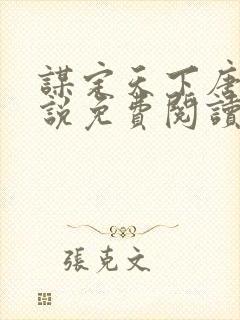 謀定天下唐
說免費閱讀
張克文